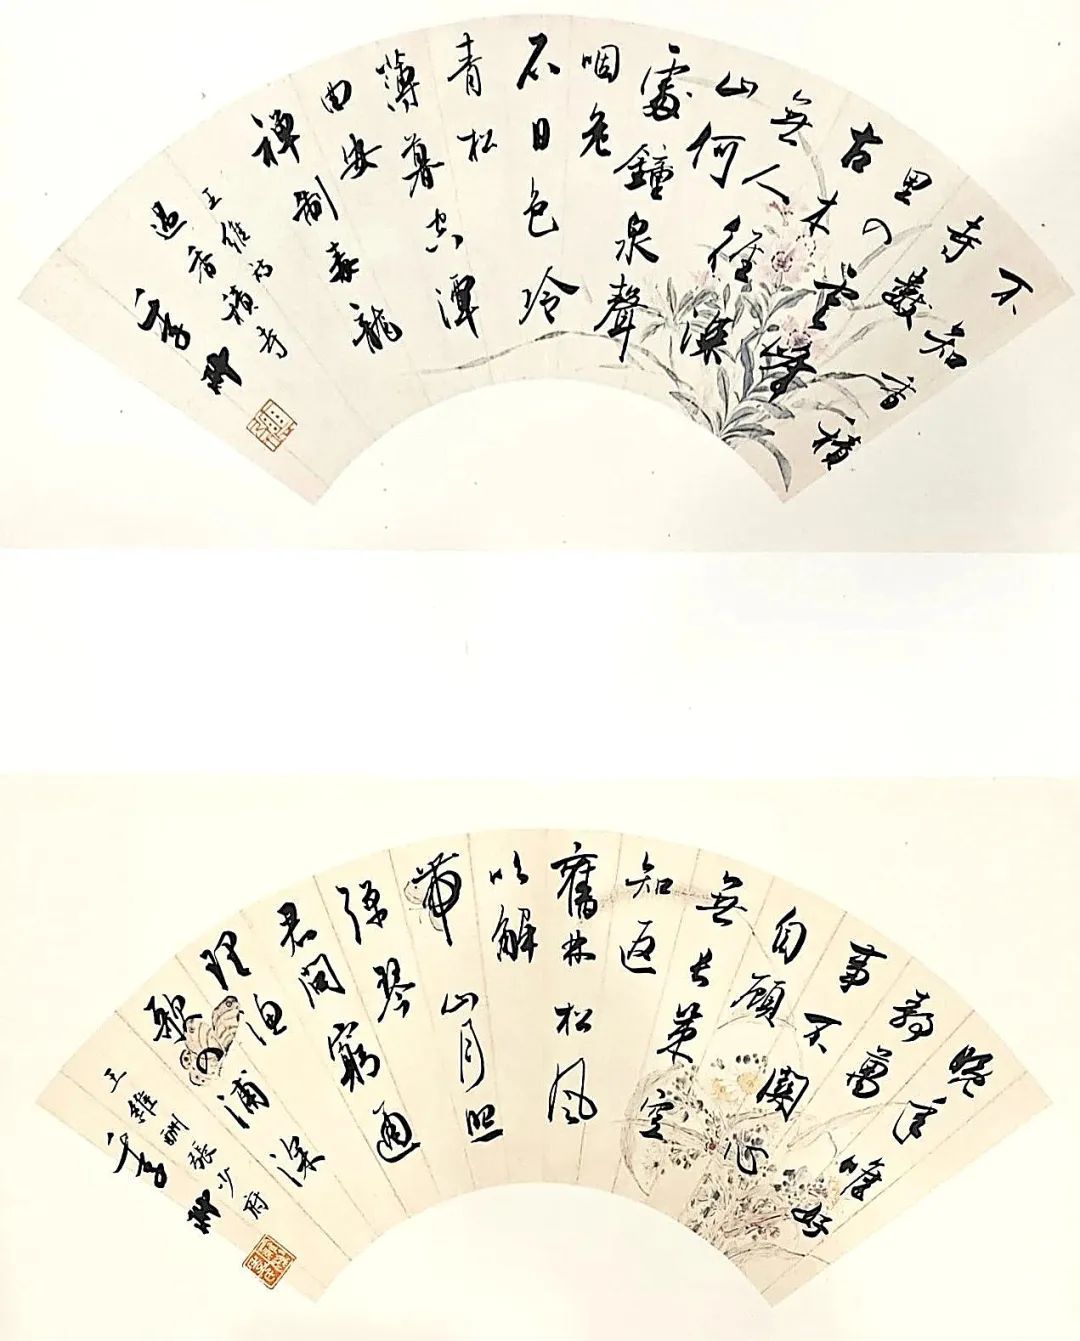 不知香積
寺數
里入雲峰
古木
無人徑深
山何
處鐘泉聲
咽危
石日色冷
青松
薄暮空潭
曲安
禪制毒龍
王維詩
過香積寺
晚年唯好
靜萬
事不關心
自顧
無長策空
知返
舊林松風
吹解
帶山月照
彈琴
君問窮通
理漁
歌入浦深
王維酬張少府